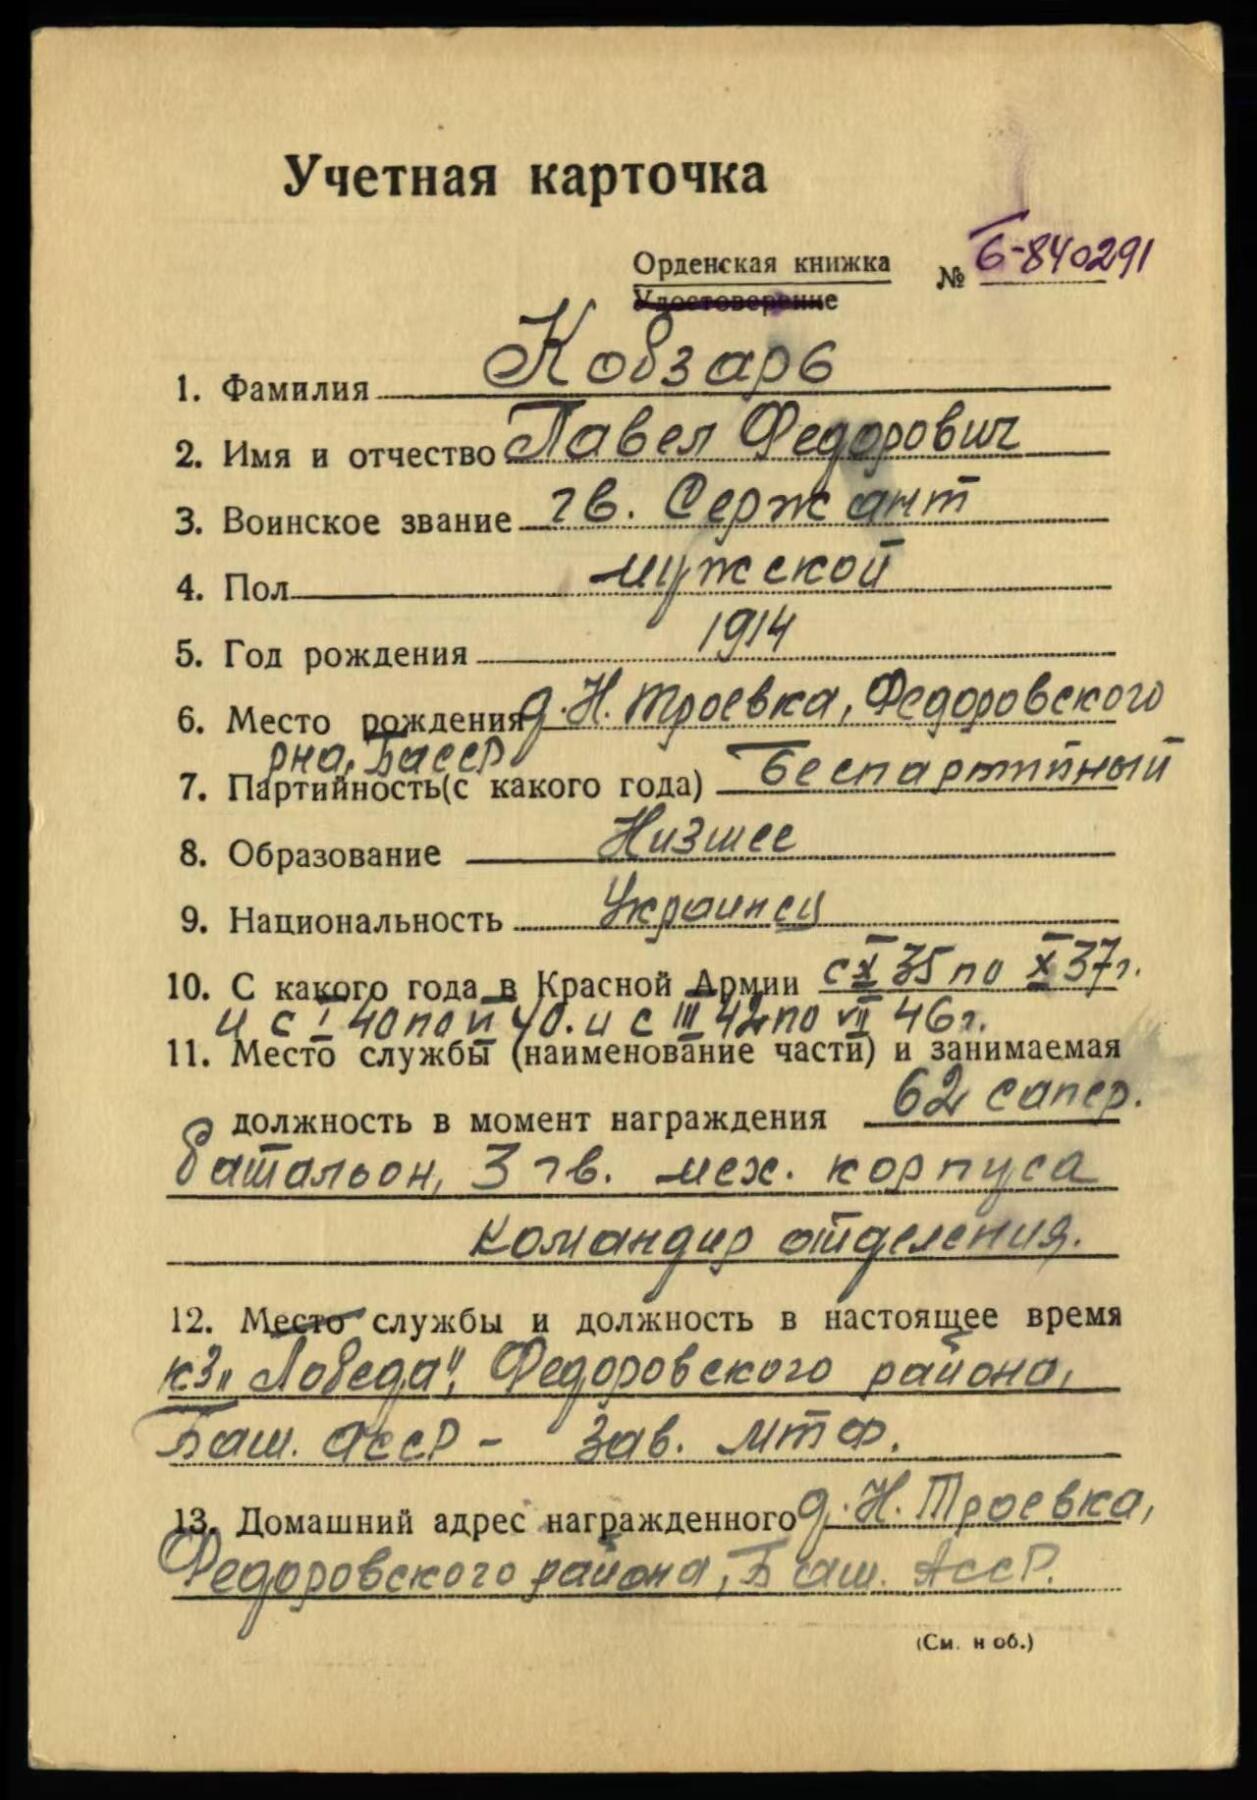 Учетная карточка
Орденская книжка № Б-840291
Удостоверение
1. Фамилия Кобзарь
2. Имя и отчество Павел Федорович
3. Воинское звание гв. Сержант
4. Пол мужской
5. Год рождения 1914
6. Место рождения д. Н. Троевка, Федоровского
рна, БАССР
7. Партийность (с какого года) Беспартийный
8. Образование Низшее
9. Национальность Украинец
10. С какого года в Красной Армии с X 35 по X 37 г.
и с I 40 по VI 40. и с III 42 по VII 46 г.
11. Место службы (наименование части) и занимаемая
должность в момент награждения 62 сапер.
батальон, 3 гв. мех. корпуса
командир отделения.
12. Место службы и должность в настоящее время
кз „Победа", Федоровского района,
Баш. АССР - Зав. МТФ.
13. Домашний адрес награжденного д. Н. Троевка,
Федоровского района, Баш. АССР.
(См. н об.)